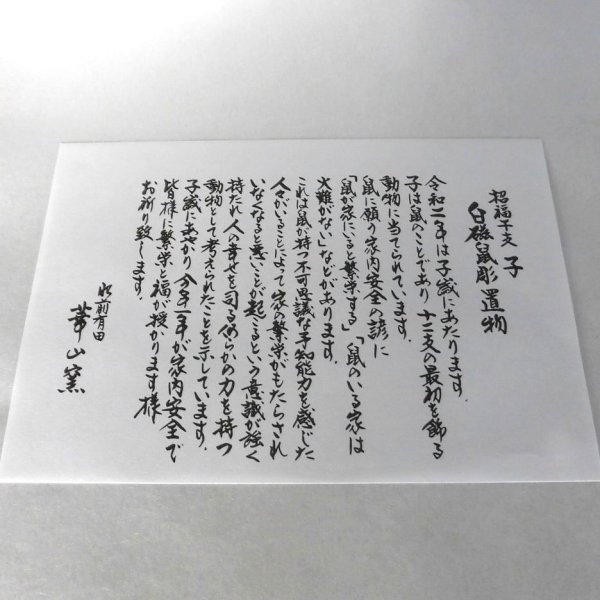 招福干支 子
白磁鼠彫置物
令和二年は子歳にあたります。
子は鼠のことであり 十二支の最初を飾る
動物に当てられています。
鼠に願う家内安全の諺に
「鼠が家にいると繁栄する」「鼠のいる家は
火難がない」などがあります。
これは鼠が持つ不可思議な予知能力を感じた
人々がいることによって家の繁栄がもたらされ
いなくなると悪いことが起こるという意識が強く
持たれ 人の幸せを司る何らかの力を持つ
動物として考えられたことを示しています。
子歳にあやかり 今年一年が家内安全で
皆様に繁栄と福が授かります様
お祈り致します。
肥前有田
華山窯